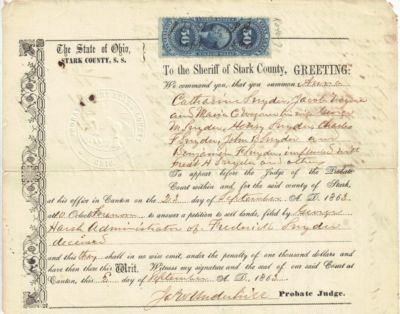 The State of Ohio,
STARK COUNTY, S. S.
To the Sheriff of Stark County, GREETING:
We command you, that you summon Anna
Catharine Snyder, Jacob
and Maria C his wife George
M Snyder, Henry Snyder, Charles
F Snyder, John Snyder and
Benjamin F Snyder impleaded with
H Snyder and others
To appear before the Judge of the Probate
Court within and for the said county of Stark,
at his office in Canton on the 23 day of September A. D. 1863,
at 10 O'clock Forenoon to answer a petition to sell lands, filed by George
Harsh Administrator of Frederick Snyder
deceased
and this they shall in no wise omit, under the penalty of one thousand dollars and
have then there this Writ. Witness my signature and the seal of our said Court at
Canton, this day of September A. D. 1863
Underhill Probate Judge.
50
50